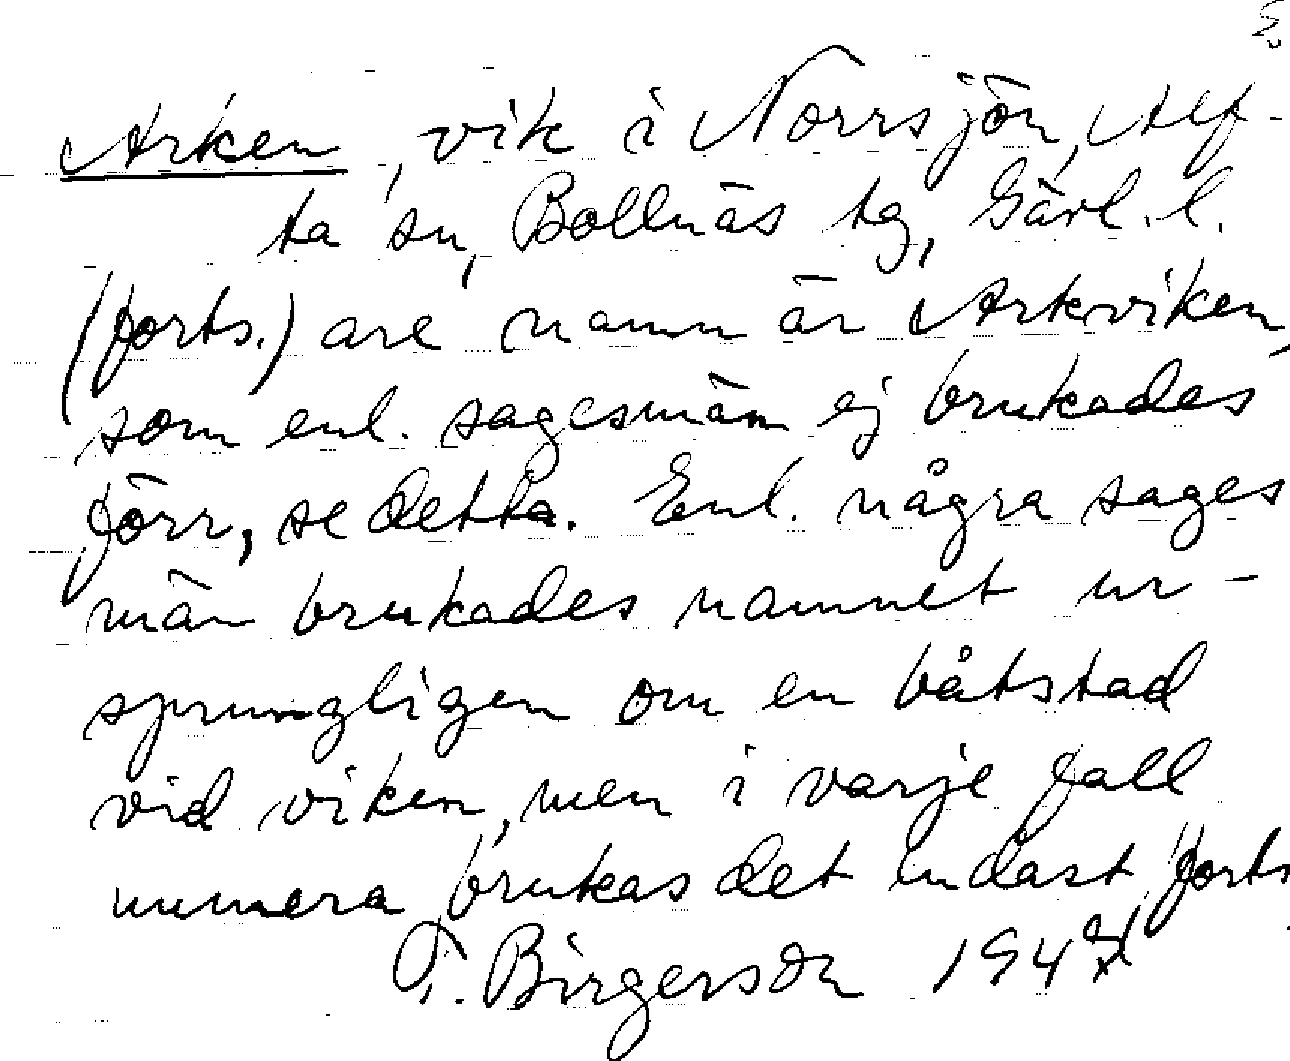 Arken, vik i Norrsjön, Alf-
ta sn, Bollnäs tg, Gävl. l.
(forts.) are namn är Arkviken,
som enl. sagesmän ej brukades
förr, se detta. Enl. några sages
män brukades namnet ur-
sprungligen om en båtstad
vid viken, men i varje fall
numera brukas det endast (forts
T. Birgerson